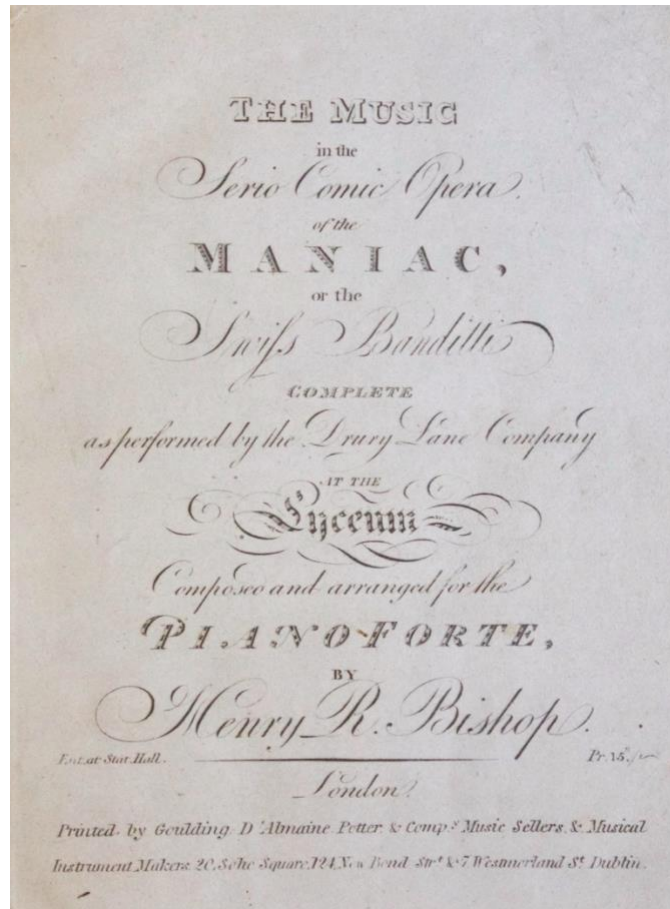 THE MUSIC
in the
Serio Comic Opera.
of the
MANIAC,
or the
Swiſs Banditti
COMPLETE
as performed by the Drury Lane Company
AT THE
Lyceum
Composed and arranged for the
PIANO-FORTE,
BY
Henry R. Bishop.
Ent. at Stat. Hall. Pr. 15
London.
Printed by Goulding D'Almaine Potter & Comp.y Music Sellers & Musical
Instrument Makers 20, Soho Square, 124 New Bond Str.t & 7 Westmorland S.t Dublin.